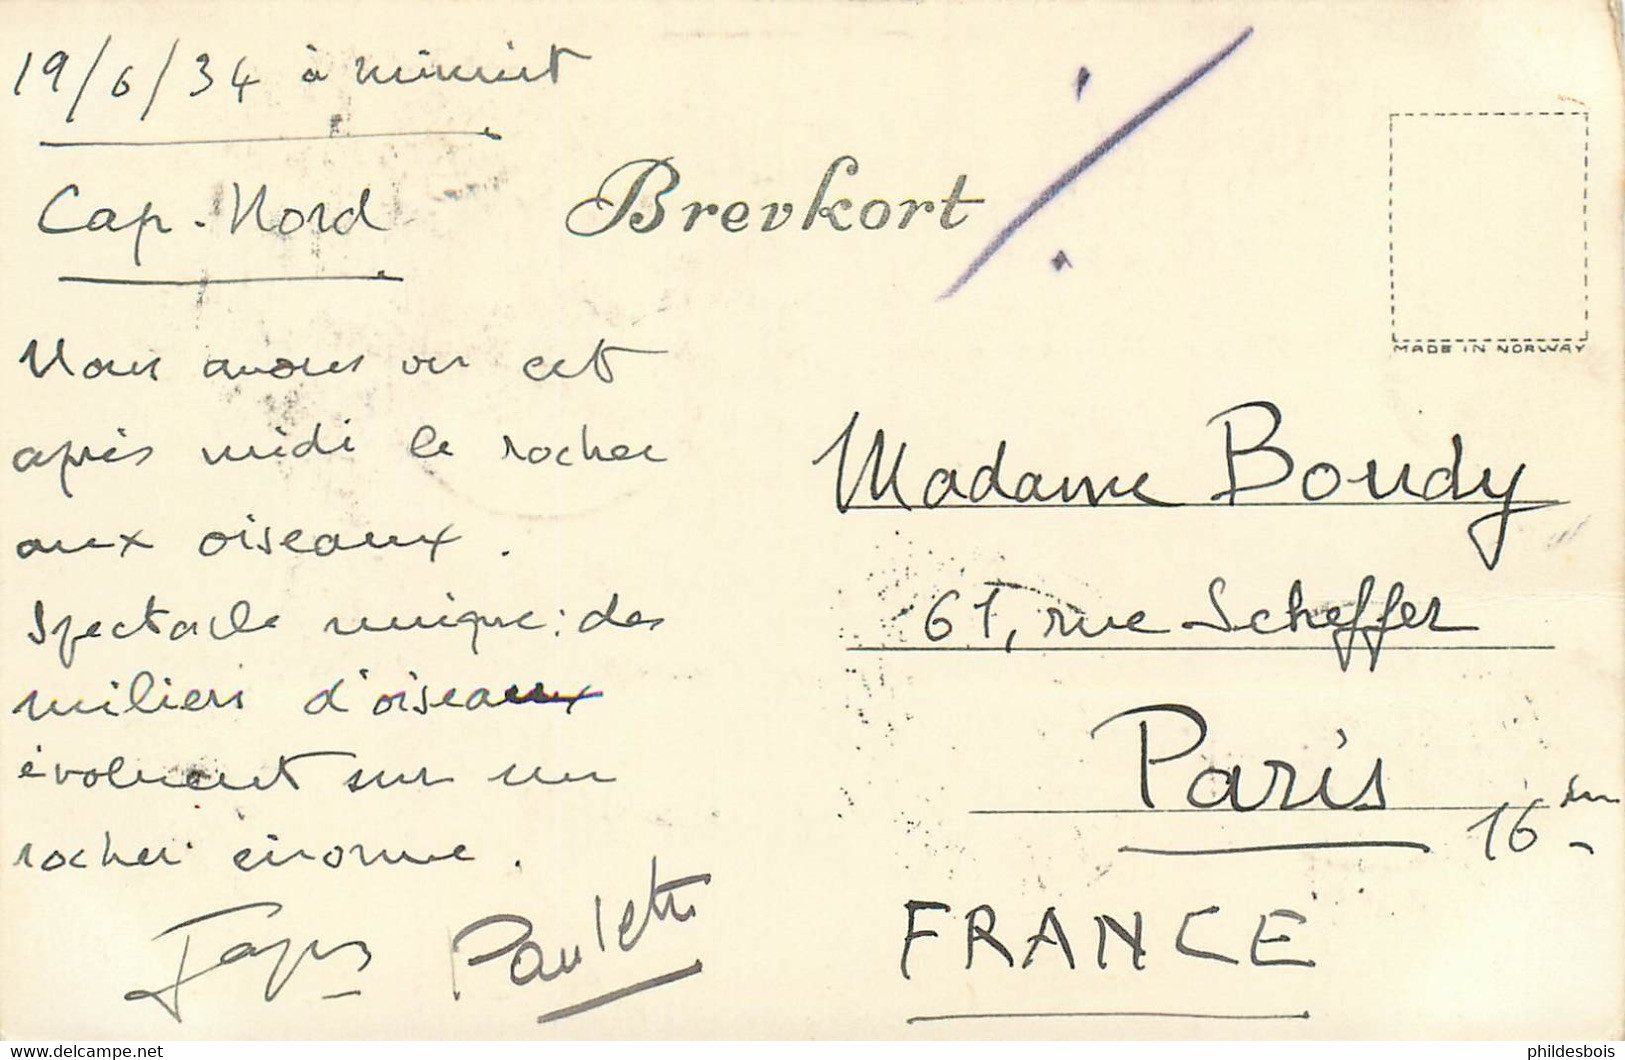 19/6/34 à minuit
Cap-Nord
Brevkort
MADE IN NORWAY
Nous avons vu cet
après midi le rocher
aux oiseaux.
Spectacle unique: des
miliers d'oiseaux
évoluent sur un
rocher énorme.
Paulette
Madame Boudy
61, rue Scheffer
Paris
16
FRANCE
phildesbois